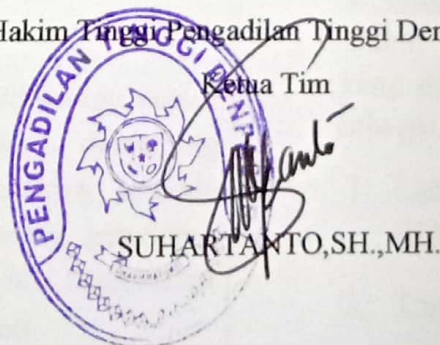 Hakim Tinggi Pengadilan Tinggi Den
Ketua Tim
PENGADILAN TINGGI DENP
SUHARTANTO,SH.,MH.